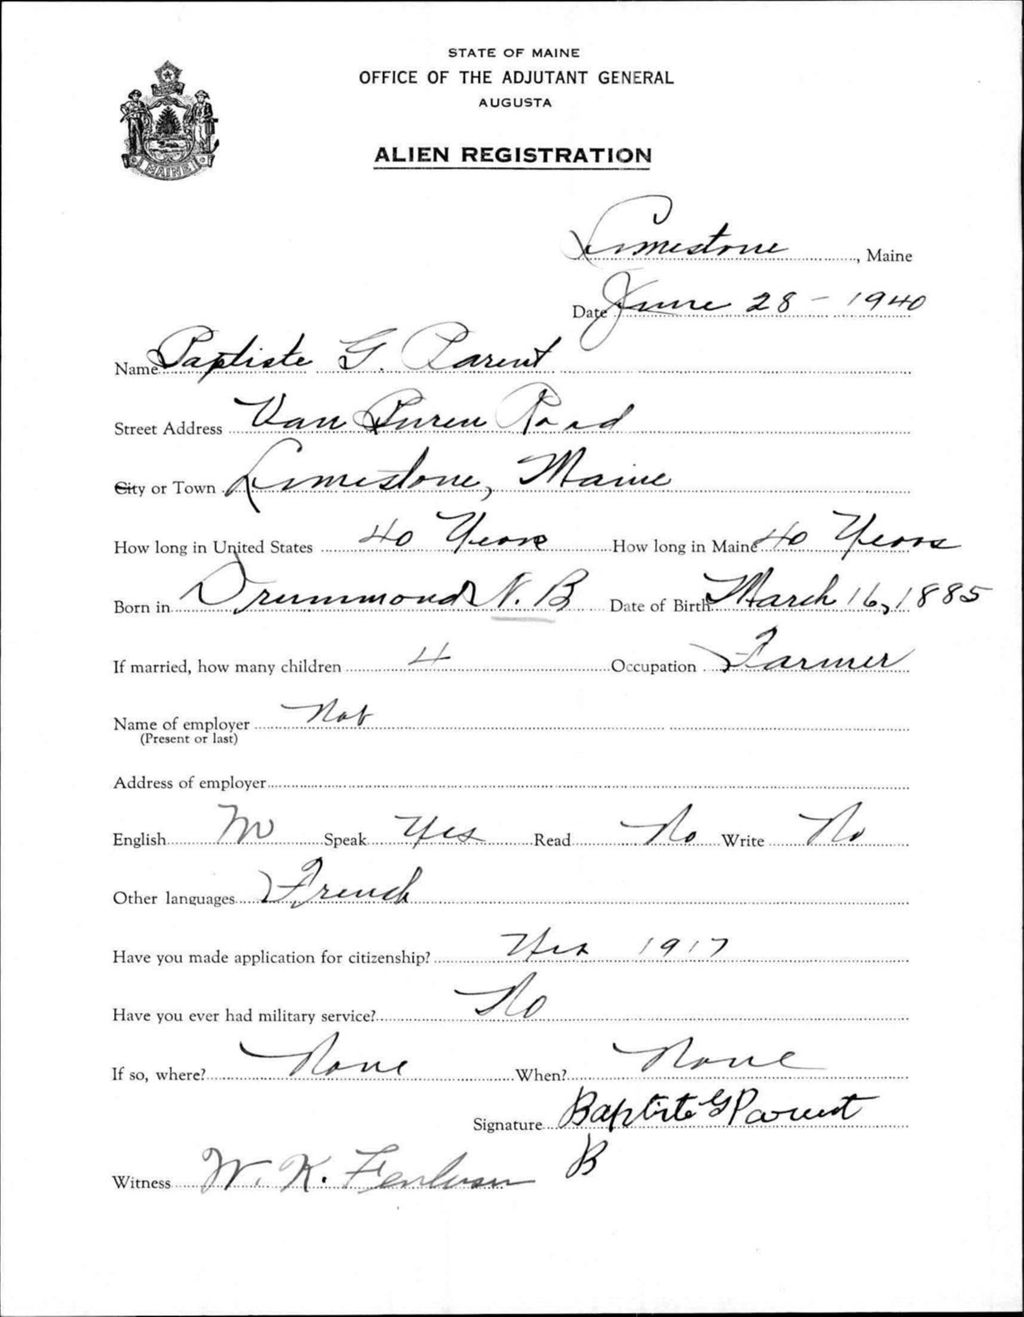 STATE OF MAINE
OFFICE OF THE ADJUTANT GENERAL
AUGUSTA
ALIEN REGISTRATION
MAINE
Limestone, Maine
Date June 28 - 1940
Name Baptiste G. Parent
Street Address Van Buren Road
City or Town Limestone, Maine
How long in United States 40 Years How long in Maine 40 Years
Born in Drummond N. B Date of Birth March 16, 1885
If married, how many children 4 Occupation Farmer
Name of employer
(Present or last)
Address of employer
English Speak Yes Read No Write No
Other languages French
Have you made application for citizenship? Yes 1917
Have you ever had military service? No
If so, where? None When? None
Signature Baptiste G Parent
B
Witness W. K.